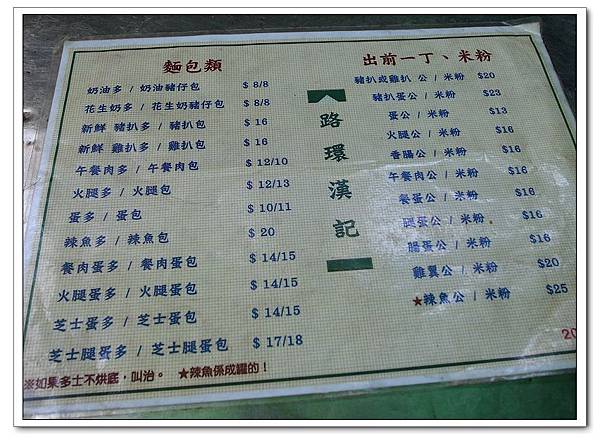 麵包類
奶油多 / 奶油豬仔包 $ 8/8
花生奶多 / 花生奶豬仔包 $ 8/8
新鮮 豬扒多 / 豬扒包 $ 16
新鮮 雞扒多 / 雞扒包 $ 16
午餐肉多 / 午餐肉包 $ 12/10
火腿多 / 火腿包 $ 12/13
蛋多 / 蛋包 $ 10/11
辣魚多 / 辣魚包 $ 20
餐肉蛋多 / 餐肉蛋包 $ 14/15
火腿蛋多 / 火腿蛋包 $ 14/15
芝士蛋多 / 芝士蛋包 $ 14/15
芝士腿蛋多 / 芝士腿蛋包 $ 17/18
※如果多士不烘底，叫治。 ★辣魚係成罐的！
路環漢記
出前一丁、米粉
豬扒或雞扒 公 / 米粉 $20
豬扒蛋公 / 米粉 $23
蛋公 / 米粉 $13
火腿公 / 米粉 $16
香腸公 / 米粉 $16
午餐肉公 / 米粉 $16
餐蛋公 / 米粉 $16
腿蛋公 / 米粉 $16
腸蛋公 / 米粉 $16
雞翼公 / 米粉 $20
★辣魚公 / 米粉 $25
20